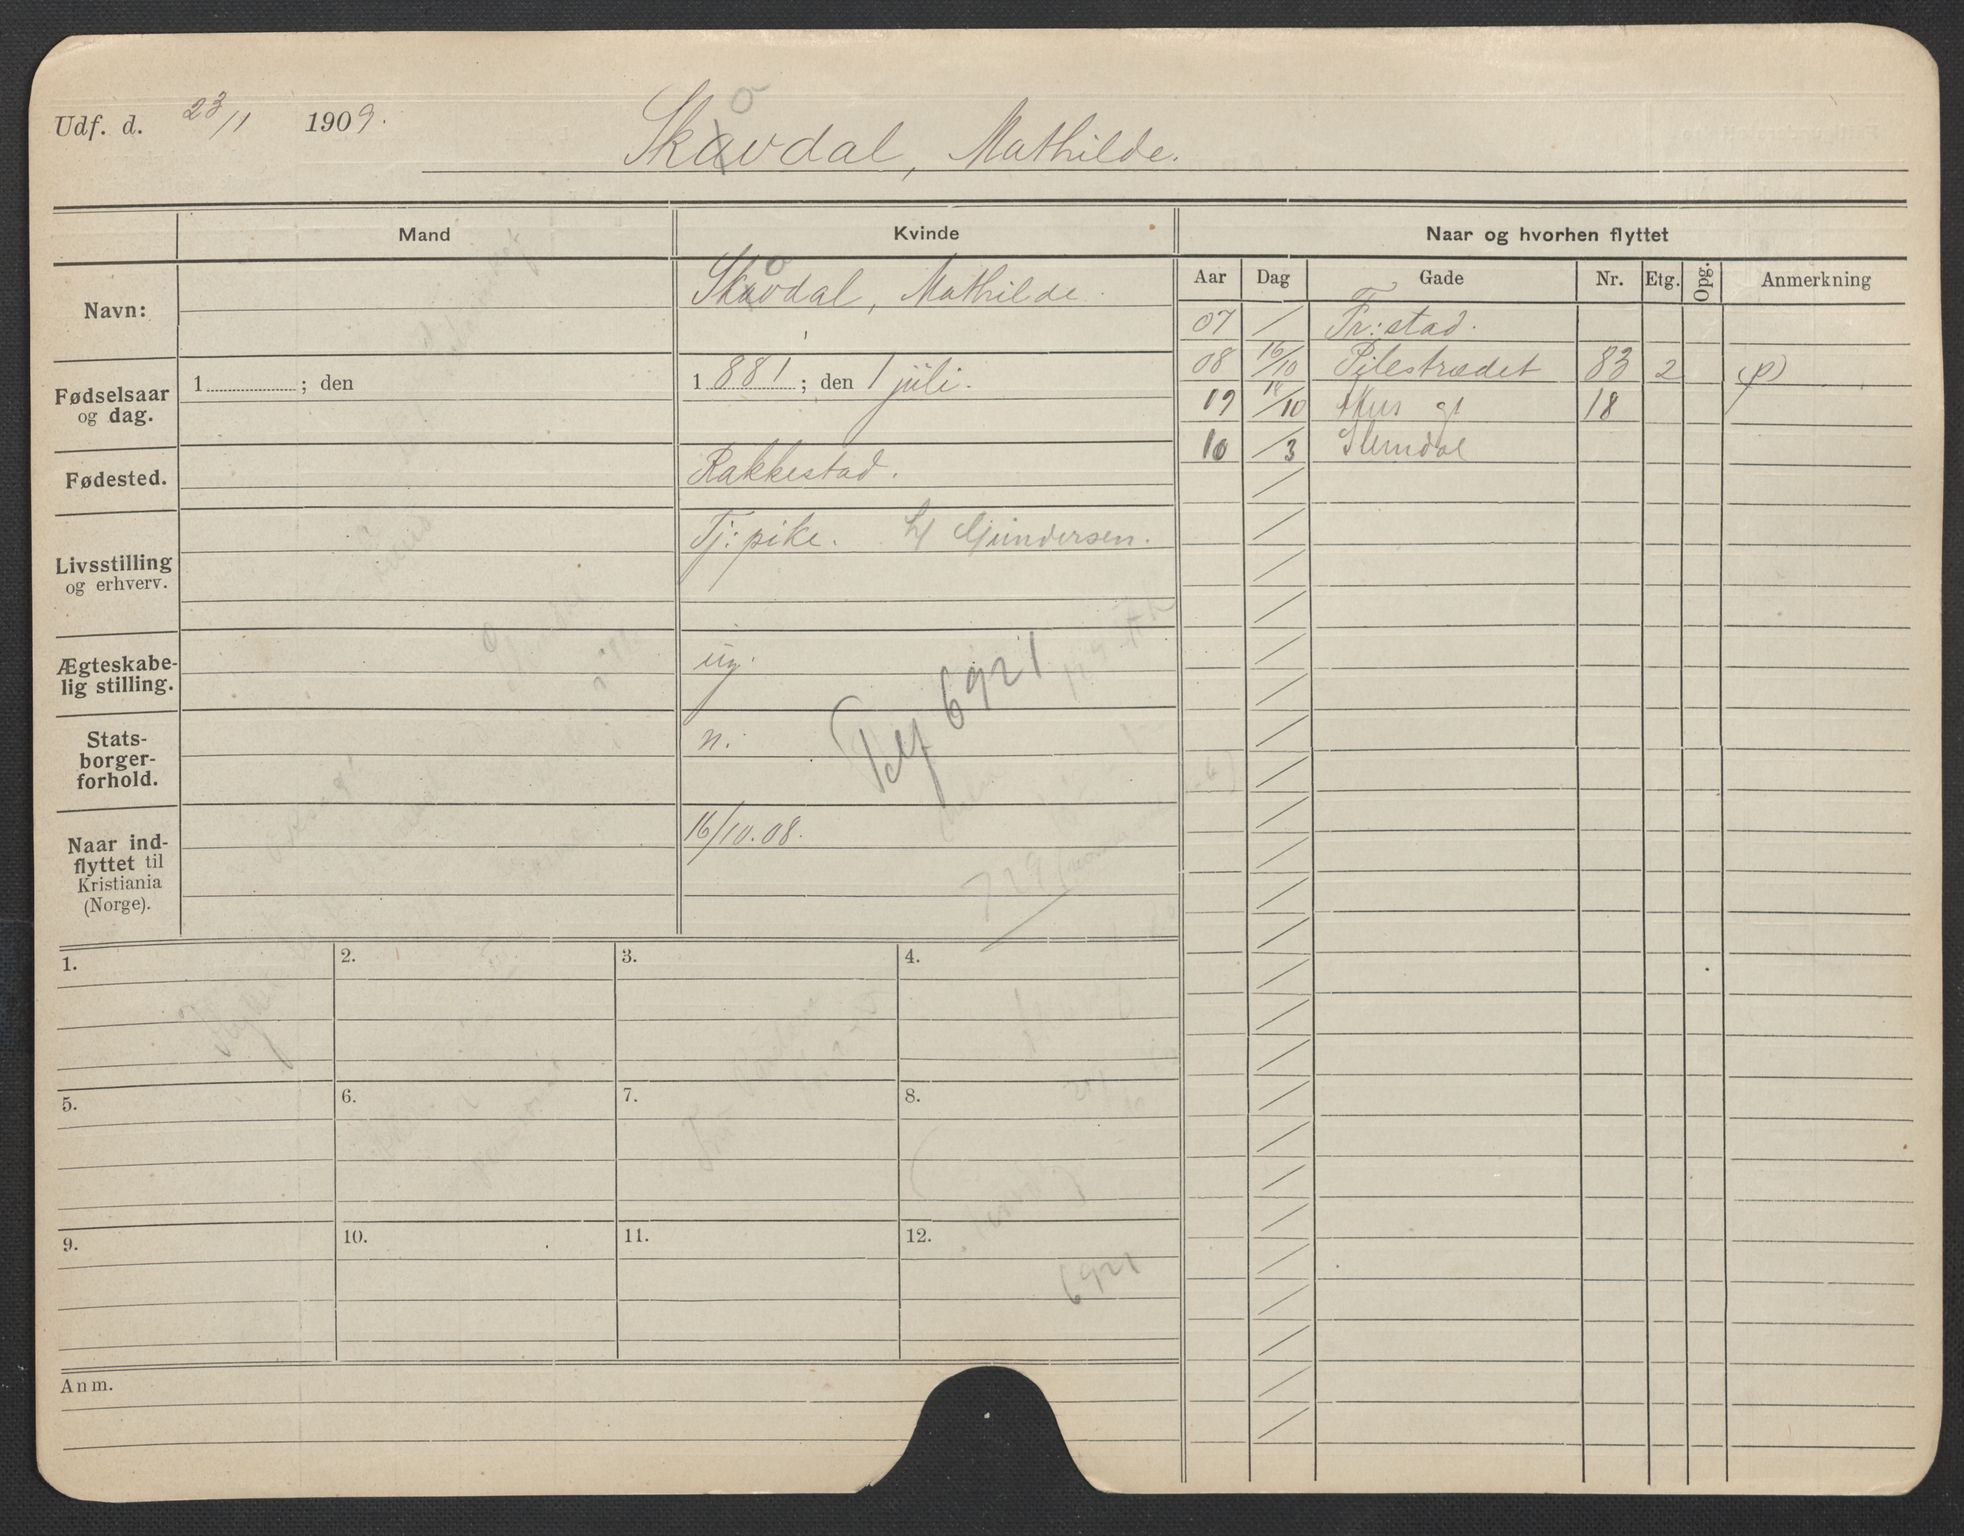 Udf. d. 23/11 1909.
o
Skavdal, Mathilde.
Mand
Kvinde
Naar og hvorhen flyttet
Aar Dag Gade Nr. Etg. Opg. Anmerkning
Navn:
o
Skavdal, Mathilde.
Fødselsaar
og dag.
1 ; den
1881; den 1 juli.
Fødested.
Rakkestad.
Livsstilling
og erhverv.
Tj: pike. Gundersen.
Ægteskabe-
lig stilling.
ug.
Stats-
borger-
forhold.
n.
Tlf 6921
Naar ind-
flyttet til
Kristiania
(Norge).
16/10.08.
07 / Fr:stad.
08 16/10 Pilestrædet 83 2 (p)
19 14/10 Akus gt 18
10 /3 Slemdal
1.
2.
3.
4.
5.
6.
7.
8.
9.
10.
11.
12.
6921
Anm.